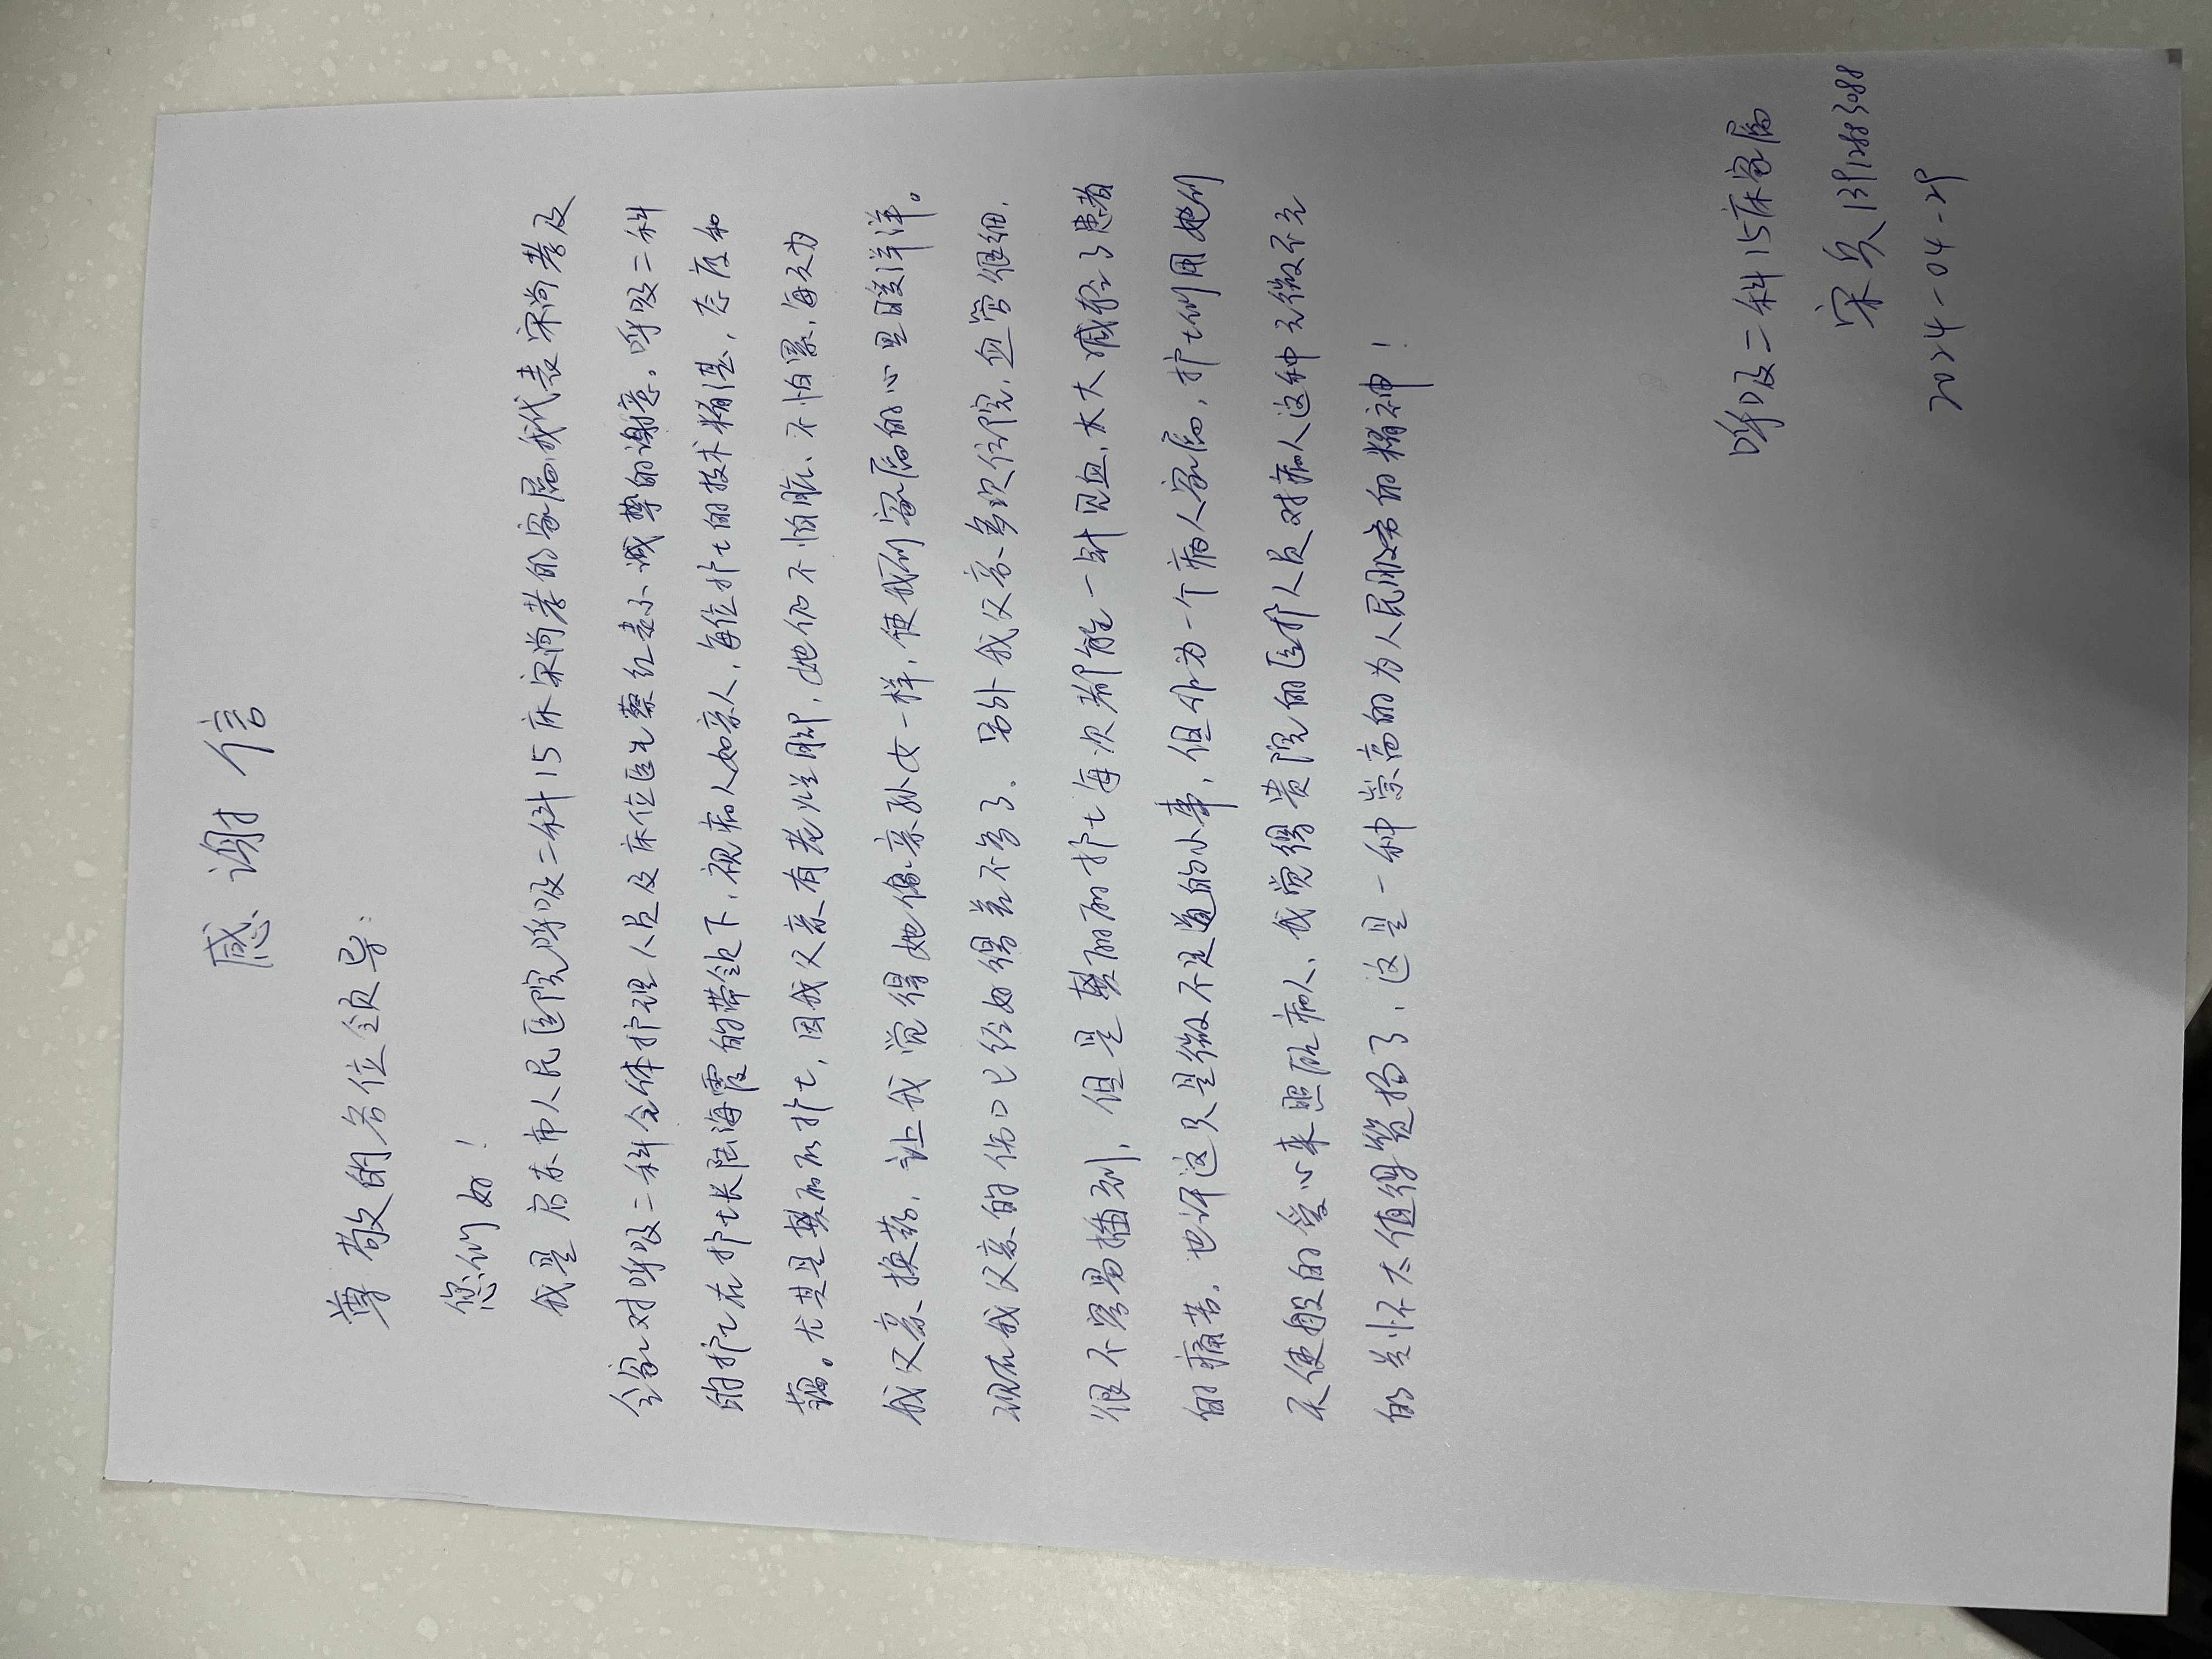 感谢信
尊敬的各位领导：
您们好！
我是启东市人民医院呼吸二科15床宋尚孝的家属，我代表宋尚孝及
全家对呼吸二科全体护理人员及床位医生蔡红表示诚挚的谢意。呼吸二科
的护士在护士长陆海霞的带领下，视病人如亲人，每位护士的技术精湛，态度和
蔼。尤其是樊丽丽护士，因我父亲有老烂脚，她仍不怕脏、不怕累，每天为
我父亲换药，让我觉得她像亲孙女一样，使我们家属的心里暖洋洋。
现在我父亲的伤口已经好得差不多了。另外我父亲多次住院，血管很细，
很不容易插到，但是樊丽丽护士每次都能一针见血，大大减轻了患者
的痛苦。也许这只是微不足道的小事，但作为一个病人家属，护士们用她们
天使般的爱心来照顾病人，我觉得贵院的医护人员对病人这种无微不至
的关怀太值得赞扬了，这是一种崇高的为人民服务的精神！
呼吸二科15床家属
宋兵
2024-04-29